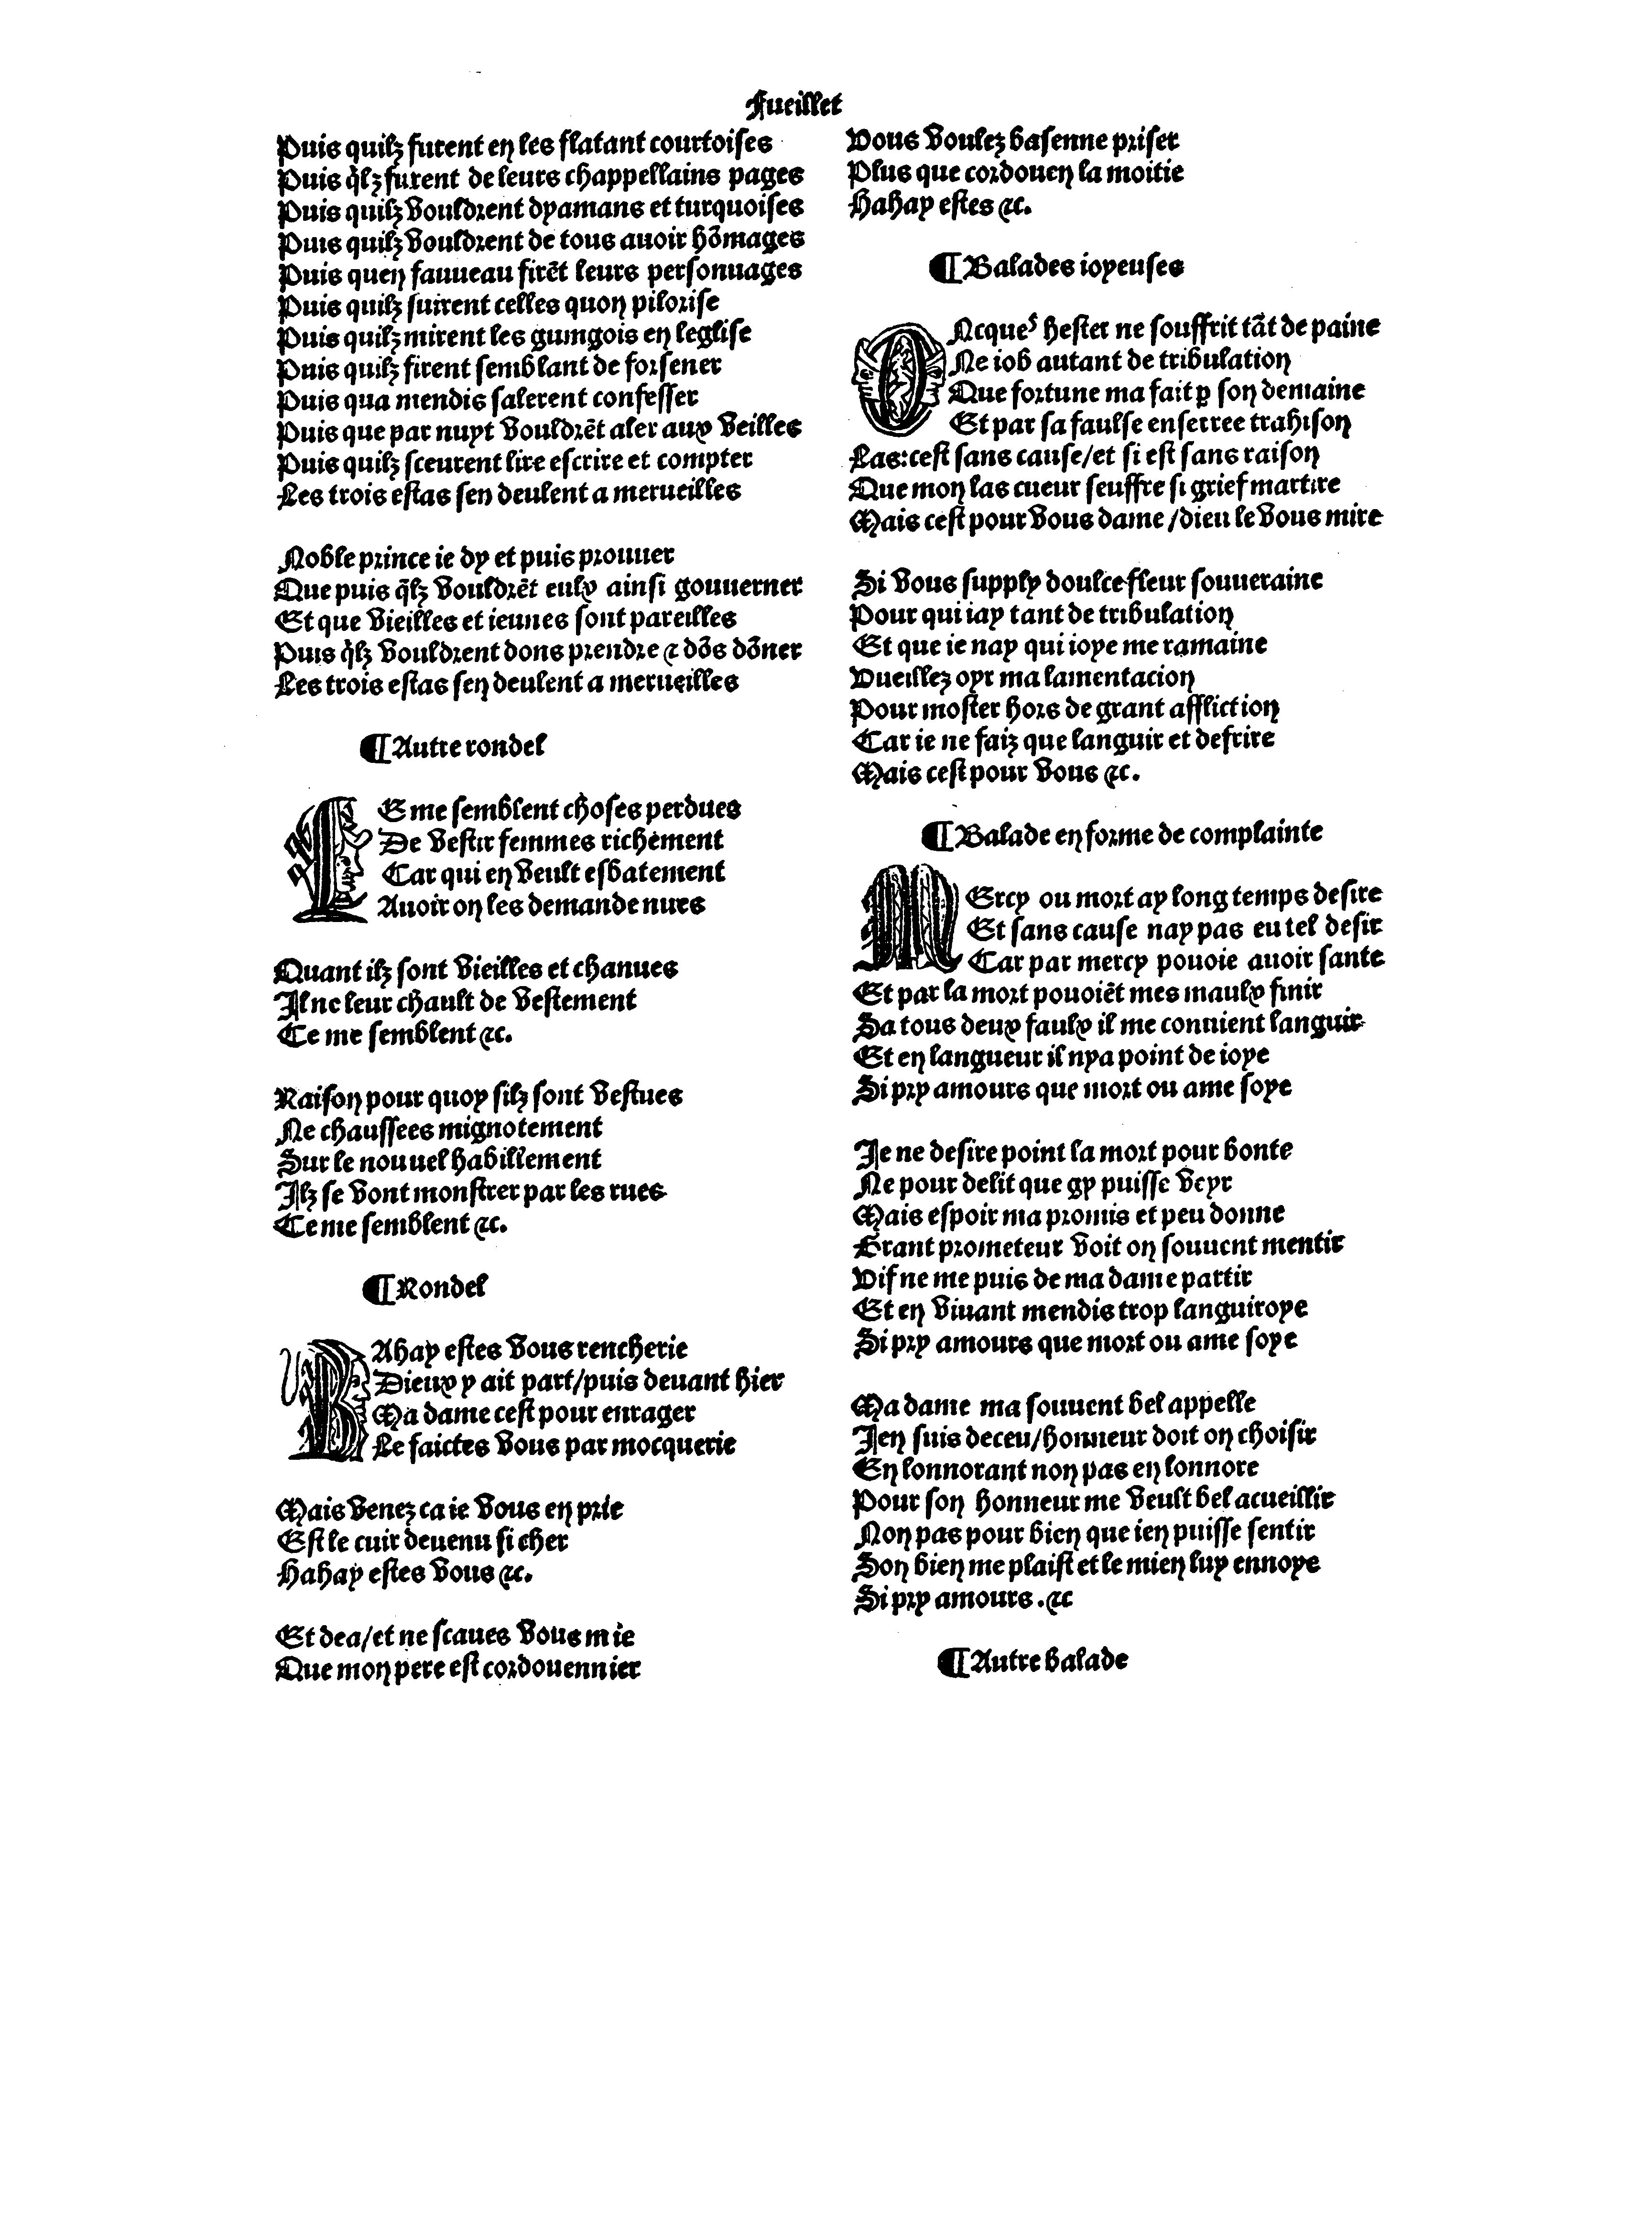 Fueillet
Puis quilz furent en les flatant courtoises
Puis q̃lz furent de leurs chappellains pages
Puis quilz vouldrent dyamans et turquoises
Puis quilz vouldrent de tous auoir hõmages
Puis quen fauueau firẽt leurs personuages
Puis quilz suirent celles quon pilorise
Puis quilz mirent les gumgois en leglise
Puis quilz firent semblant de forsener
Puis qua mendis salerent confesser
Puis que par nuyt vouldrẽt aler aux veilles
Puis quilz sceurent lire escrire et compter
Les trois estas sen deulent a merueilles
Noble prince ie dy et puis prouuer
Que puis q̃lz vouldrẽt eulx ainsi gouuerner
Et que vieilles et ieunes sont pareilles
Puis q̃lz vouldrent dons prendre ⁊ dõs dõner
Les trois estas sen deulent a merueilles
¶ Autre rondel
CE me semblent choses perdues
De vestir femmes richement
Car qui en veult esbatement
Auoir on les demande nues
Quant ilz sont vieilles et chanues
Il ne leur chault de vestement
Ce me semblent ⁊c.
Raison pour quoy silz sont vestues
Ne chaussees mignotement
Sur le nouuel habillement
Ilz se vont monstrer par les rues
Ce me semblent ⁊c.
¶ Rondel
BAhay estes vous rencherie
Dieux y ait part/puis deuant hier
Ma dame cest pour enrager
Le faictes vous par mocquerie
Mais venez ca ie vous en prie
Est le cuir deuenu si cher
Hahay estes vous ⁊c.
Et dea/et ne scaues vous mie
Que mon pere est cordouennier
Vous voulez basenne priser
Plus que cordouen la moitie
Hahay estes ⁊c.
¶ Balades ioyeuses
ONcques hester ne souffrit tãt de paine
Ne iob autant de tribulation
Que fortune ma fait ꝑ son demaine
Et par sa faulse enserree trahison
Las:cest sans cause/et si est sans raison
Que mon las cueur seuffre si grief martire
Mais cest pour vous dame/dieu le vous mire
Si vous supply doulce fleur souueraine
Pour qui iay tant de tribulation
Et que ie nay qui ioye me ramaine
Vueillez oyr ma lamentacion
Pour moster hors de grant affliction
Car ie ne faiz que languir et defrire
Mais cest pour vous ⁊c.
¶ Balade en forme de complainte
MErcy ou mort ay long temps desire
Et sans cause nay pas eu tel desir
Car par mercy pouoie auoir sante
Et par la mort pouoiẽt mes maulx finir
Sa tous deux faulx il me conuient languir
Et en langueur il nya point de ioye
Si pry amours que mort ou ame soye
Je ne desire point la mort pour bonte
Ne pour delit que gy puisse veyr
Mais espoir ma promis et peu donne
Grant prometeur voit on souuent mentir
Vif ne me puis de ma dame partir
Et en viuant mendis trop languiroye
Si pry amours que mort ou ame soye
Ma dame ma souuent bel appelle
Jen suis deceu/honneur doit on choisir
En lonnorant non pas en lonnore
Pour son honneur me veult bel acueillir
Non pas pour bien que ien puisse sentir
Son bien me plaist et le mien luy ennoye
Si pry amours .⁊c
¶ Autre balade